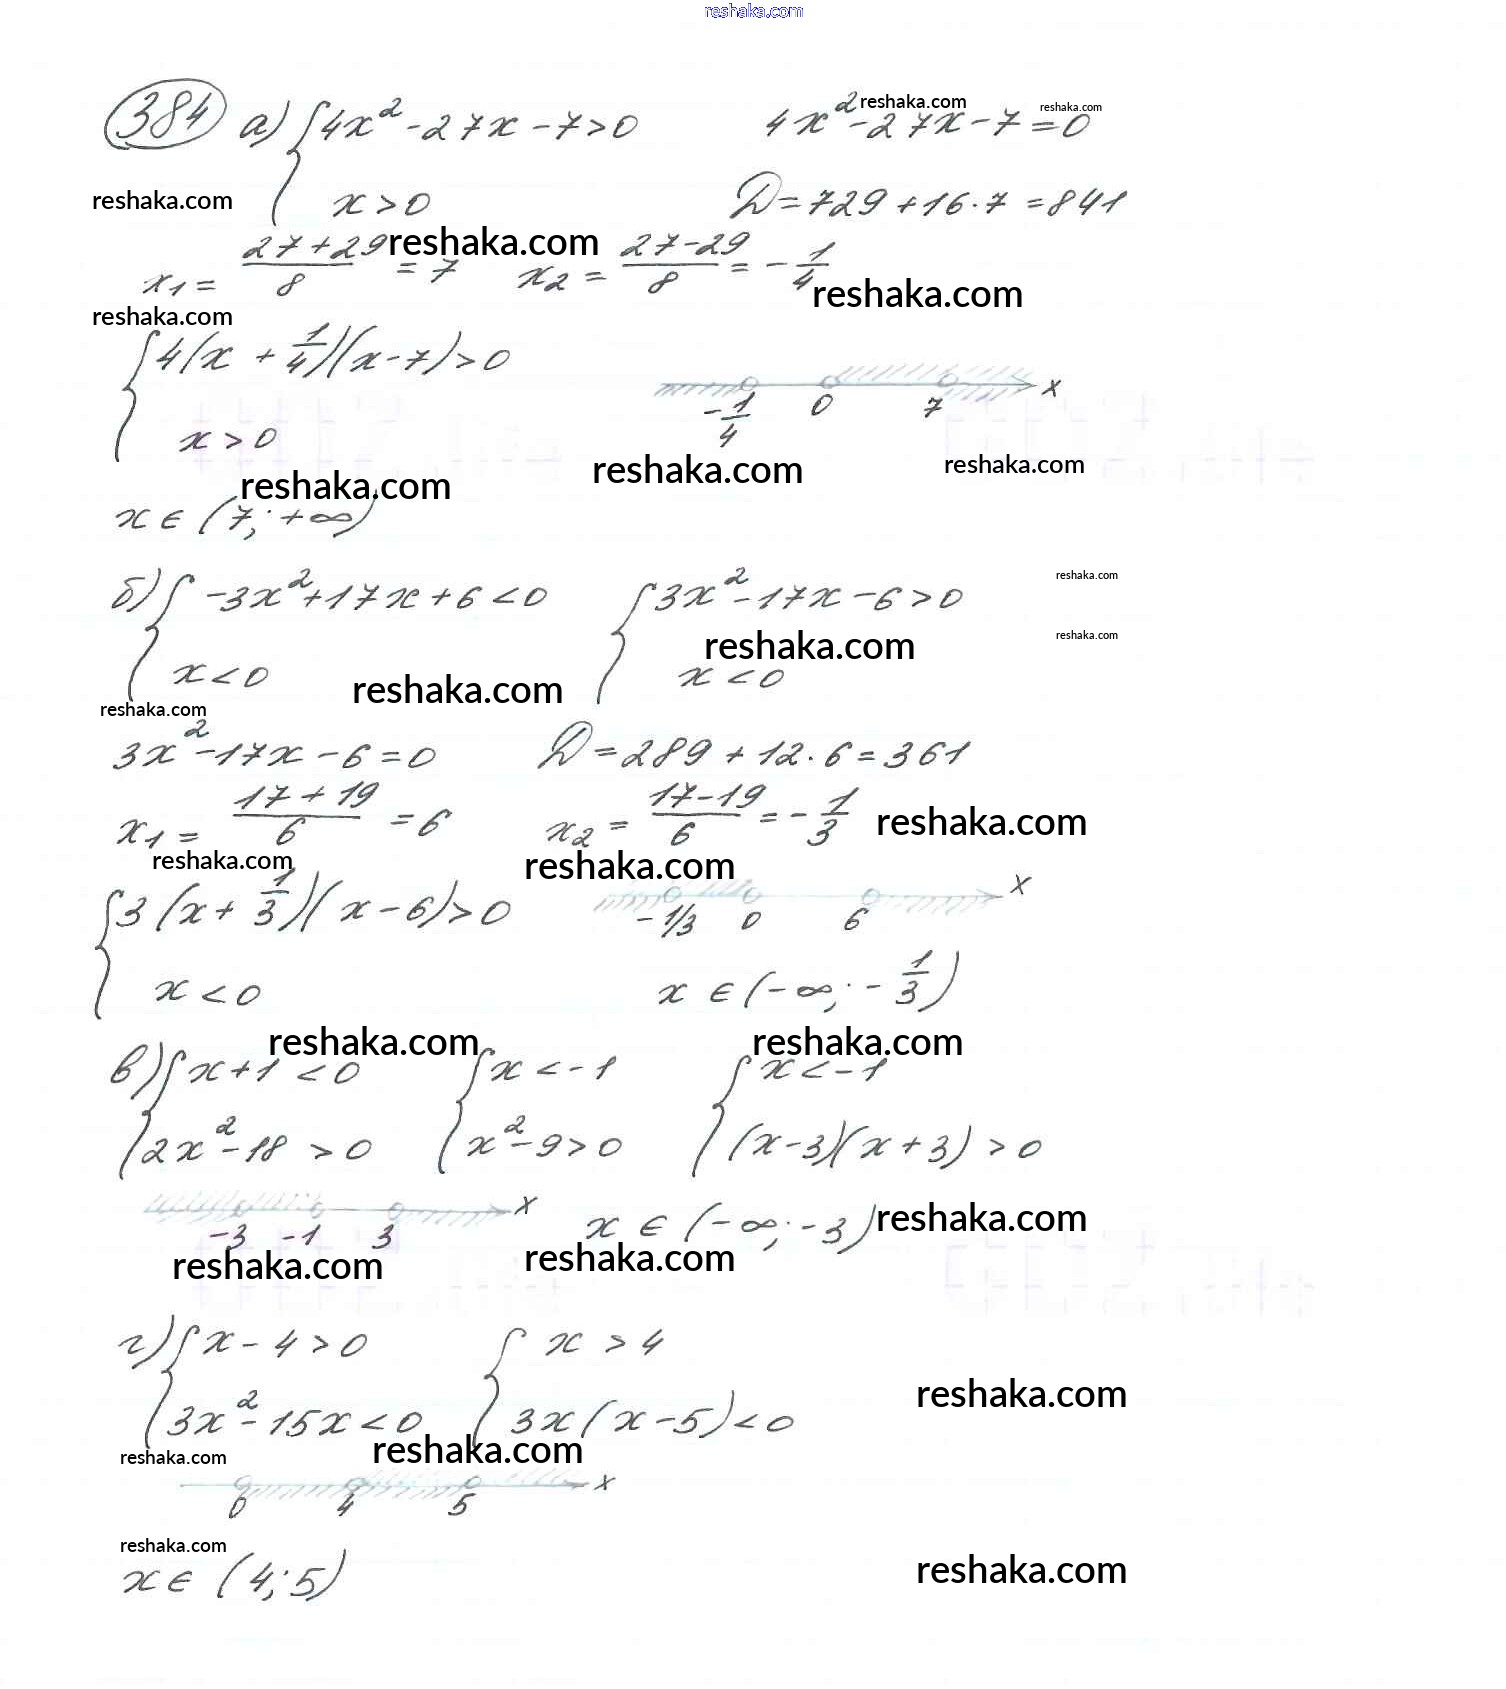 reshaka.com
384 а) { 4x² - 27x - 7 > 0 4x² - 27x - 7 = 0
reshaka.com reshaka.com
x > 0 D = 729 + 16·7 = 841
reshaka.com
x₁ = (27+29)/8 = 7 x₂ = (27-29)/8 = -1/4
reshaka.com reshaka.com
reshaka.com
{ 4(x + 1/4)(x - 7) > 0
-1/4 0 7 x
x > 0
reshaka.com reshaka.com reshaka.com
x ∈ (7; +∞)
б) { -3x² + 17x + 6 < 0 { 3x² - 17x - 6 > 0
reshaka.com
reshaka.com reshaka.com
x < 0 x < 0
reshaka.com
reshaka.com
3x² - 17x - 6 = 0 D = 289 + 12·6 = 361
x₁ = (17+19)/6 = 6 x₂ = (17-19)/6 = -1/3
reshaka.com
reshaka.com reshaka.com
{ 3(x + 1/3)(x - 6) > 0
-1/3 0 6 x
x < 0 x ∈ (-∞; -1/3)
reshaka.com reshaka.com
в) { x + 1 < 0 { x < -1 { x < -1
2x² - 18 > 0 x² - 9 > 0 (x-3)(x+3) > 0
-3 -1 3 x x ∈ (-∞; -3)
reshaka.com
reshaka.com reshaka.com
г) { x - 4 > 0 { x > 4
reshaka.com
3x² - 15x < 0 3x(x - 5) < 0
reshaka.com reshaka.com
0 4 5 x
reshaka.com
x ∈ (4; 5)
reshaka.com